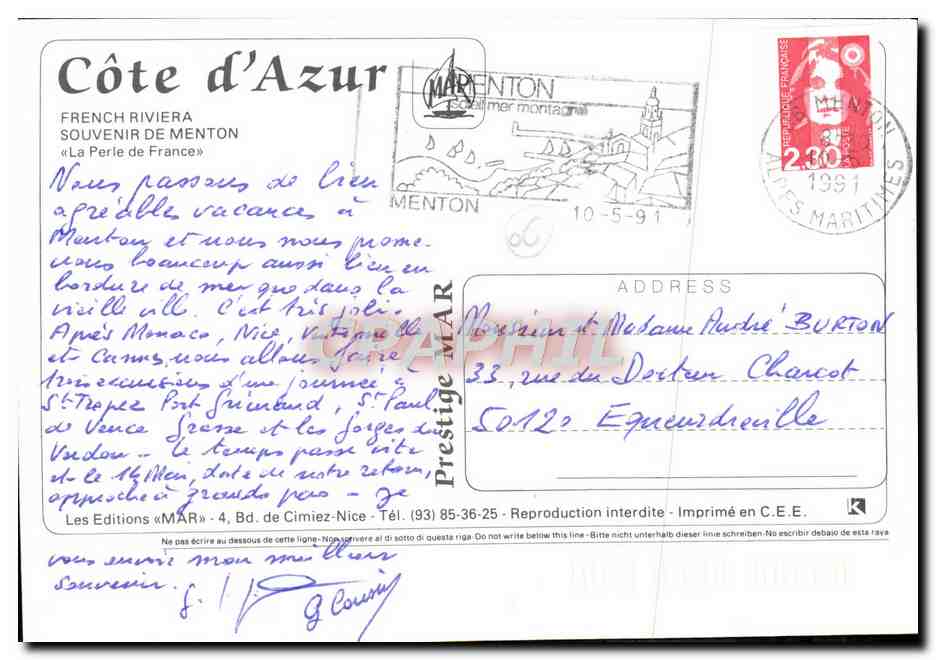 Côte d'Azur
FRENCH RIVIERA
SOUVENIR DE MENTON
«La Perle de France»
MAR
MENTON
soleil mer montagne
MENTON
10-5-91
06
RÉPUBLIQUE FRANÇAISE
LA POSTE
2,30
MENTON
1991
ALPES MARITIMES
Nous passons de bien
agréables vacances à
Menton et nous nous prome-
nons beaucoup aussi bien en
bordure de mer que dans la
vieille ville. C'est très joli.
Après Monaco, Nice, Vintimille
et Cannes, nous allons faire
trois excursions d'une journée à
St-Tropez Port Grimaud, St Paul
de Vence Grasse et les gorges du
Verdon - Le temps passe vite
et le 14 Mai, date de notre retour,
approche à grands pas - Je
vous envoie mon meilleur
souvenir.
Prestige MAR
ADDRESS
Monsieur et Madame André BURTON
33, rue du Docteur Charcot
50120 Equeurdreville
DELCAMPHIL
Les Editions «MAR» - 4, Bd. de Cimiez-Nice - Tél. (93) 85-36-25 - Reproduction interdite - Imprimé en C.E.E.
K
Ne pas écrire au dessous de cette ligne-Non scrivere al di sotto di questa riga-Do not write below this line-Bitte nicht unterhalb dieser linie schreiben-No escribir debajo de esta raya